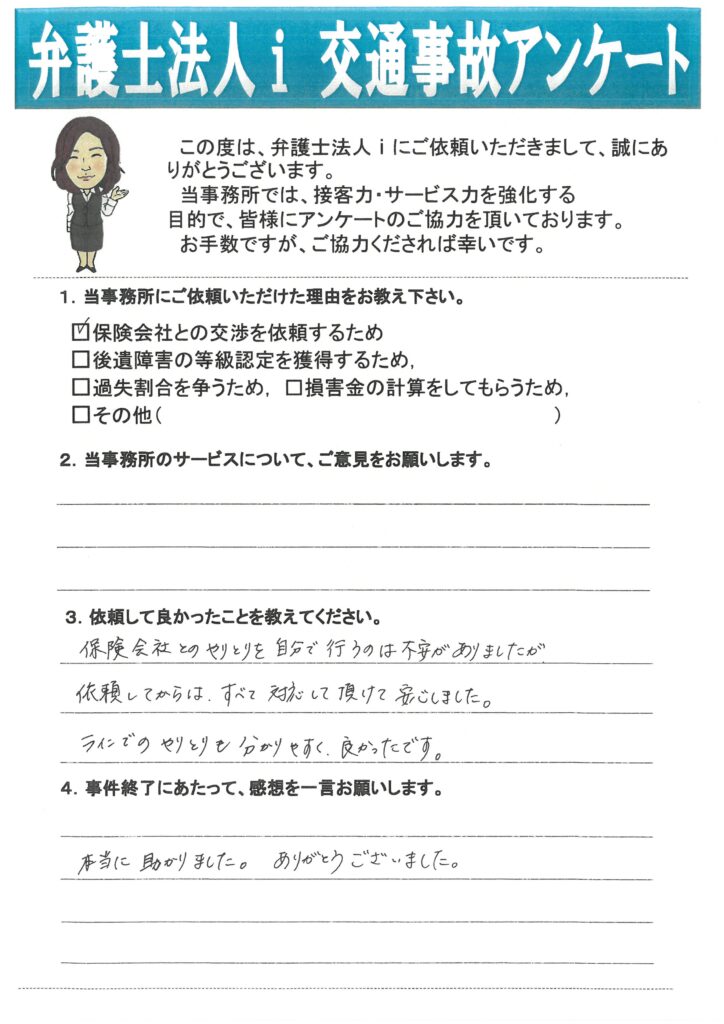 弁護士法人ｉ 交通事故アンケート
この度は、弁護士法人ｉにご依頼いただきまして、誠にあ
りがとうございます。
当事務所では、接客力・サービス力を強化する
目的で、皆様にアンケートのご協力を頂いております。
お手数ですが、ご協力くだされば幸いです。
１．当事務所にご依頼いただけた理由をお教え下さい。
☑保険会社との交渉を依頼するため
□後遺障害の等級認定を獲得するため，
□過失割合を争うため， □損害金の計算をしてもらうため，
□その他（ ）
２．当事務所のサービスについて、ご意見をお願いします。
３．依頼して良かったことを教えてください。
保険会社とのやりとりを自分で行うのは不安がありましたが
依頼してからは、すべて対応して頂けて安心しました。
ラインでのやりとりも分かりやすく、良かったです。
４．事件終了にあたって、感想を一言お願いします。
本当に助かりました。 ありがとうございました。